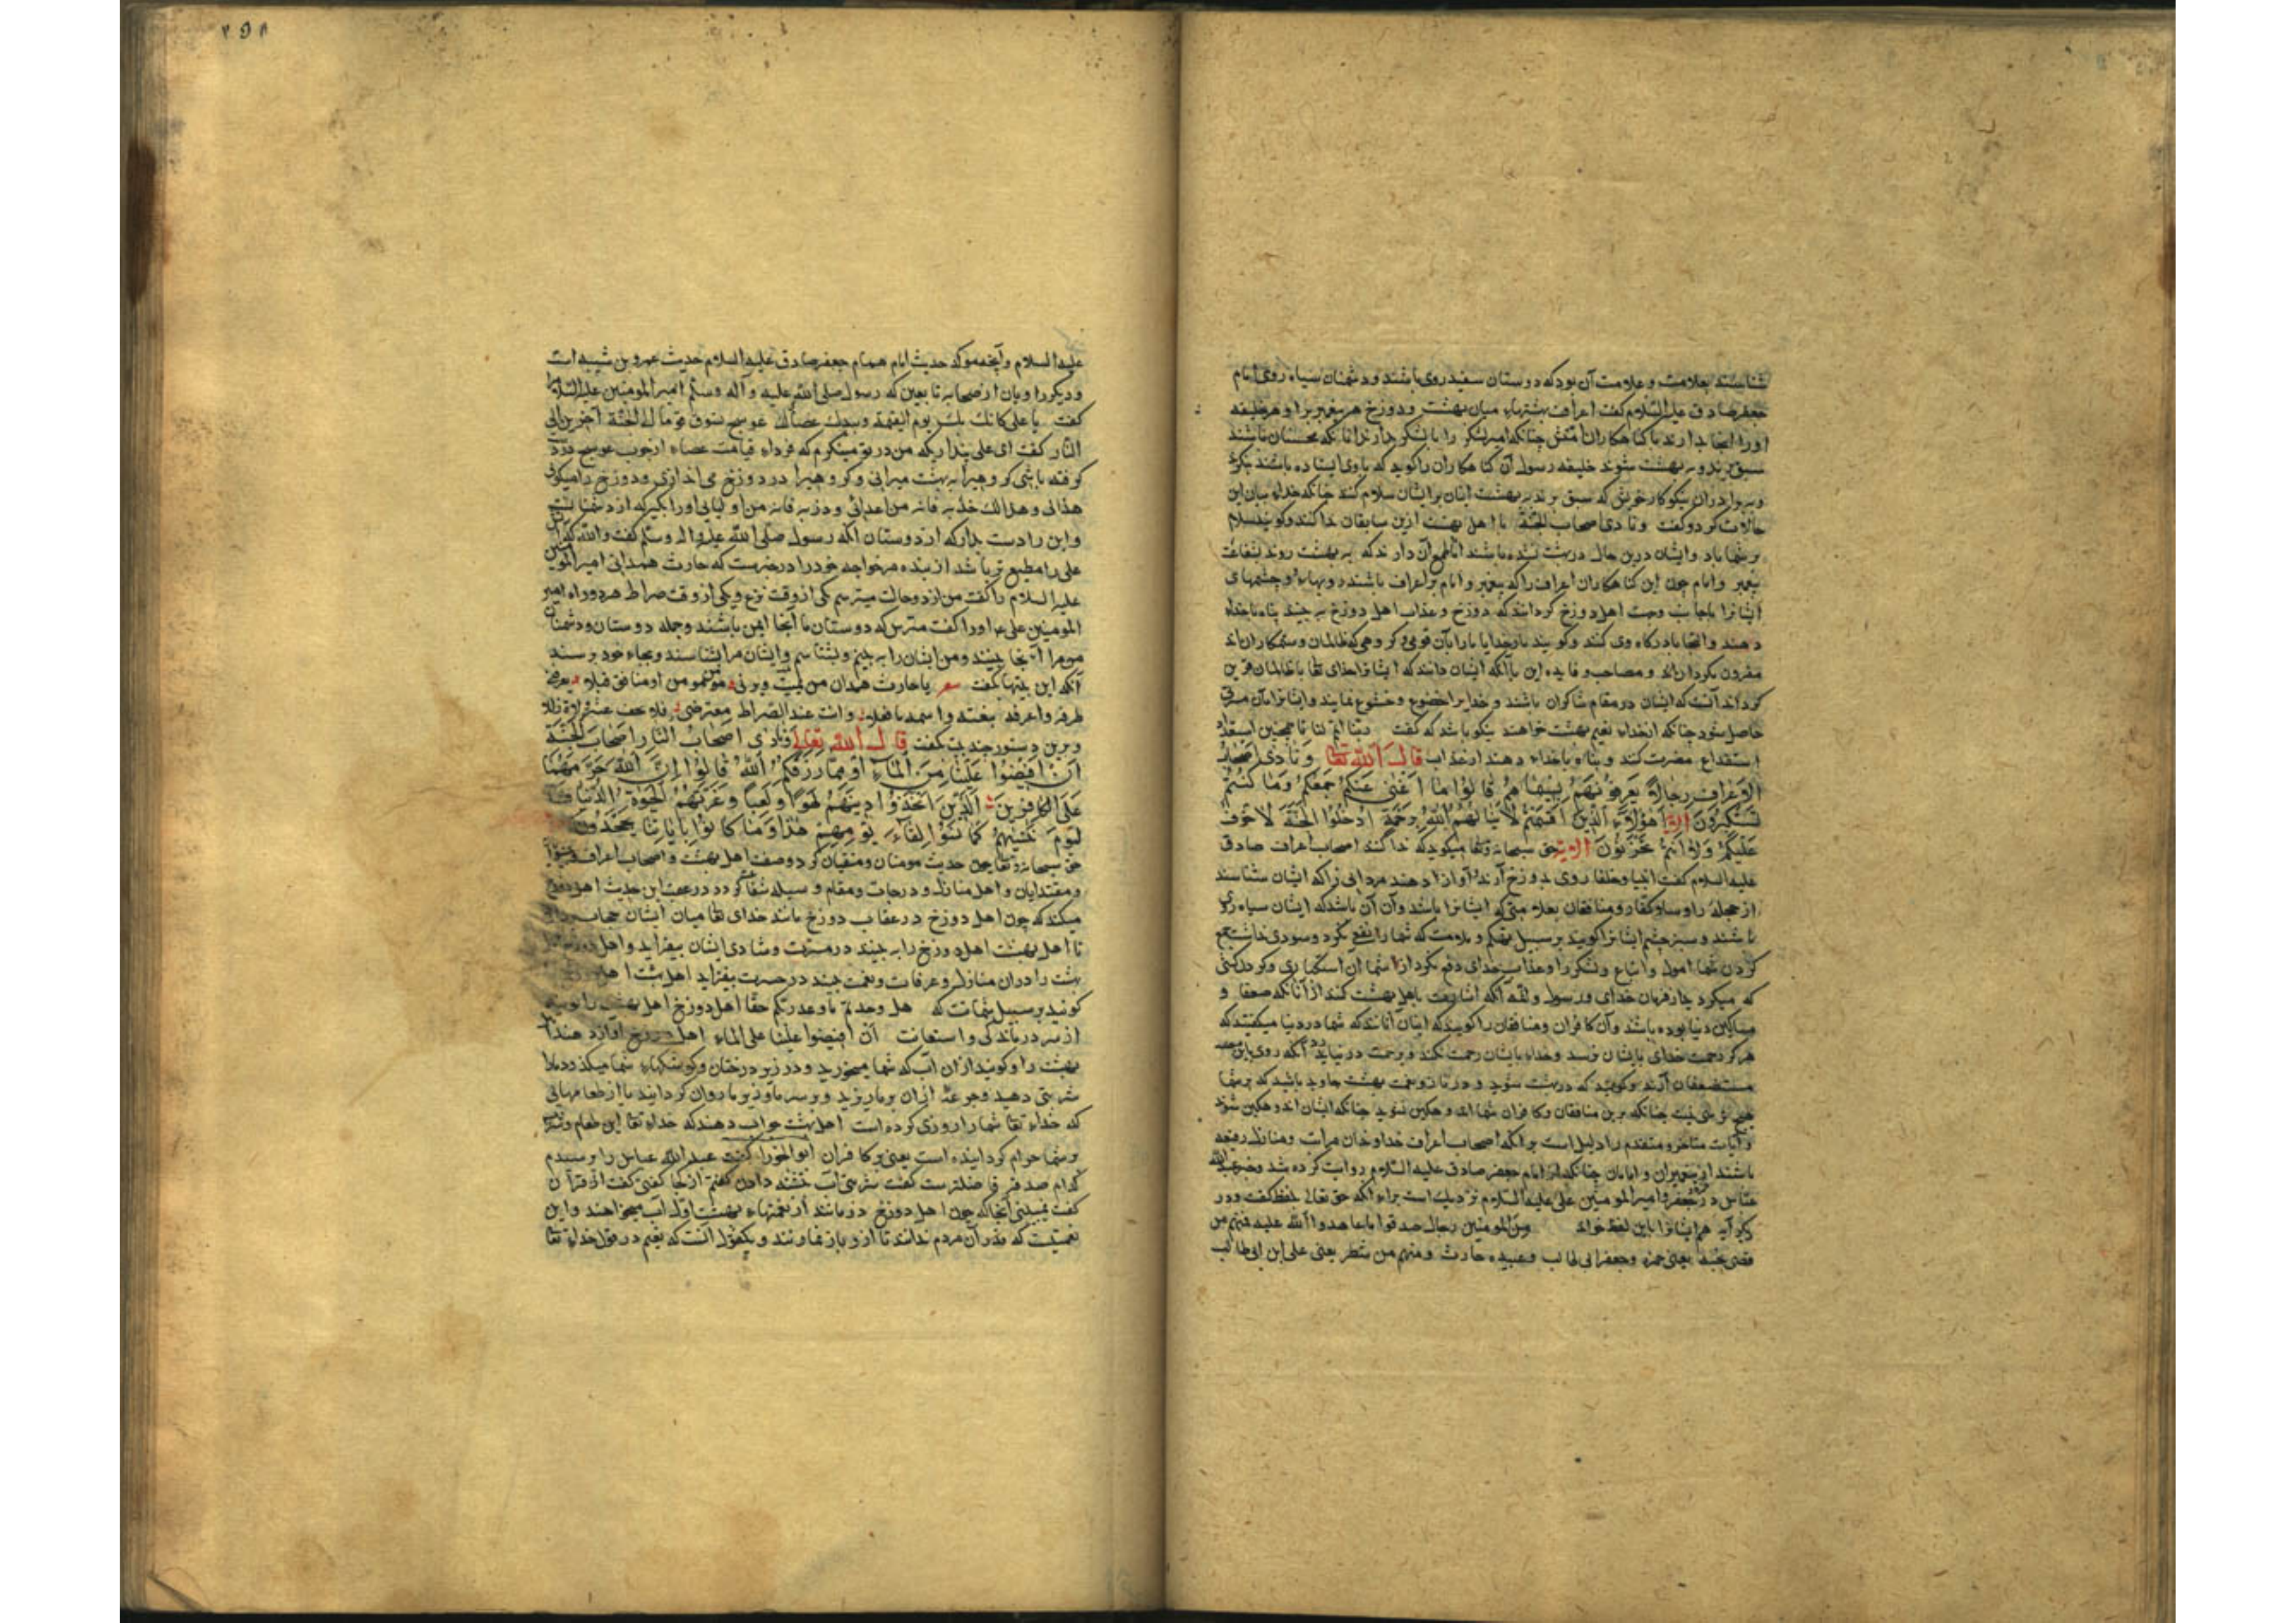 شناسند بعلامت و علامت آن بود که دوستان سفید روی باشند و دشمنان سیاه روی امام
جعفر صادق علیه السلام کفت اعراف میان بهشت و دوزخ هر پیغمبر را و هر خلیفه
او را آنجا بدارند با کناهکاران امتش چنانکه امیر لشکر را با لشکر بدارند تا آنکه محسنان باشند
سبق برند و به بهشت شوند خلیفه رسول آن کناهکاران را کوید که با وی ایستاده باشند
و به برادران نیکوکار خویش که سبق برند به بهشت اینان بر ایشان سلام کنند چنانکه خدای بیان این
حالات کرد و کفت و نادی اصحاب الجنة با اهل بهشت ازین سابقان ندا کنند و کویند سلام
بر شما باد و ایشان درین حال در بهشت نشده باشند اما طمع آن دارند که به بهشت روند بشفاعت
پیغمبر و امام چون این کناهکاران اعراف را که پیغمبر و امام بر اعراف باشند و چشمهای
ایشانرا بجانب وجهت اهل دوزخ کردانند که دوزخ و عذاب اهل دوزخ به بینند پناه با خدای
دهند و التجا با درکاه وی کنند و کویند بار خدایا ما را با آن قومی و کروهی که ظالمان و ستمکاران اند
مقرون مکردان و مصاحب و فایده این با آنکه ایشان دانند که ایشانرا خدای تعالی با ظالمان قرین
کرداند آنست که ایشان در مقام شاکران باشند و خدایرا خضوع و خشوع نمایند و ایشانرا بآن مسرتی
حاصل شود چنانکه از خدای نعیم بهشت خواهند نیکو باشد که کفت ربنا اتمم لنا نا همچنین
استدفاع مضرت کنند و پناه با خدای دهند از عذاب قال الله تعالی و نادی اصحاب
الاعراف رجالا یعرفونهم بسیماهم قالوا ما اغنی عنکم جمعکم وما کنتم
تستکبرون الایة اهؤلاء الذین اقسمتم لا ینالهم الله برحمة ادخلوا الجنة لا خوف
علیکم ولا انتم تحزنون الایة حق سبحانه و تعالی میکوید که ندا کنند اصحاب اعراف صادق
علیه السلام کفت انبیا و خلفا روی بدوزخ آرند آواز دهند مردانی را که ایشان شناسند
از جمله رؤسای کفار و منافقان بعلامتی که ایشانرا باشد و آن آن باشد که ایشان سیاه روی
باشند و سبز چشم ایشانرا کویند بر سبیل تهکم و ملامت که شما را نفع نکرد و سودی نداشت جمع
کردن شما اموال و اتباع و لشکر را و عذاب خدای دفع نکرد از شما آن استکباری و کردنکشی
که میکردید از فرمان خدای و رسول و آنکه اشارت باهل بهشت کنند از آنانکه ضعفا و
مساکین دنیا بوده باشند و آن کافران و منافقان را کویند که اینان آنانند که شما در دنیا میکفتید که
هرکز رحمت خدای بایشان نرسد و خدای بایشان رحمت نکند و برحمت در نیاید آنکه روی باین
مستضعفان آرند و کویند که در بهشت شوید و در ناز و نعمت بهشت جاوید باشید که بر شما
هیچ ترسی نیست چنانکه برین منافقان و کافران شما اندوهکین نشوید چنانکه ایشان اندوهکین شوند
و آیات متاخر و متقدم را دلیل است بر آنکه اصحاب اعراف خداوندان مراتب و منازل رفیعه
باشند از پیغمبران و امامان چنانکه از امام جعفر صادق علیه السلام روایت کرده شد و خبر عبدالله
عباس در جعفر و امیر المومنین علی علیه السلام نزدیک است برای آنکه حق تعالی بلفظ کفت و در
دیکر آیه هم ایشانرا باین لفظ خواند ومن المومنین رجال صدقوا ما عاهدوا الله علیه فمنهم من
قضی نحبه یعنی حمزه و جعفر ابی طالب و عبیده حارث و منهم من ینتظر یعنی علی ابن ابی طالب
۲۵۸
علیه السلام و آنچه موکد حدیث امام همام جعفر صادق علیه السلام حدیث عمرو بن شیبه است
و دیکر راویان از صحابه تا بعین که رسول صلی الله علیه و آله وسلم امیر المومنین علیه السلام را
کفت یا علی کانک یوم القیمة وبیدک عصاک عوسج تسوق قوما الی الجنة آخرین الی
النار کفت ای علی پنداری که من در تو مینکرم که فردای قیامت عصای از چوب عوسج در دست
کرفته باشی کروهی را به بهشت میرانی و کروهی را در دوزخ می اندازی و دوزخ را میکوئی
هذا لی وهذا لک خذیه فانه من اعدائی و ذریه فانه من اولیائی او را بکیر که از دشمنان منست
و این را دست بدار که از دوستان آنکه رسول صلی الله علیه واله وسلم کفت والله که
علی را مطیع تر باشد از بنده مر خواجه خود را در خبرست که حارث همدانی امیر المومنین
علیه السلام را کفت من از دو حالت میترسم یکی از وقت نزع و یکی از وقت صراط هر دو راه امیر
المومنین علی ع او را کفت مترس که دوستان ما آنجا ایمن باشند و جمله دوستان و دشمنان
من مرا آنجا بینند و من ایشان را به بینم و بشناسم و ایشان مرا بشناسند و بجای خود برسند
آنکه این بیتها بکفت شعر یا حارث همدان من یمت یرنی من مومن او منافق قبلا یعرفنی
طرفه واعرفه بنعته واسمه ما فعلا وانت عند الصراط معترضی فلا تخف عثرة ولا زللا
و برین دستور چند بیت بکفت قال الله تعالی و نادی اصحاب النار اصحاب الجنة
ان افیضوا علینا من الماء او مما رزقکم الله قالوا ان الله حرمهما
علی الکافرین الذین اتخذوا دینهم لهوا ولعبا وغرتهم الحیوة الدنیا
فالیوم ننسیهم کما نسوا لقاء یومهم هذا وما کانوا بایاتنا یجحدون
حق سبحانه و تعالی چون حدیث مومنان و متقیان کرد و وصف اهل بهشت و اصحاب اعراف
و مقتدایان و اهل منازل و درجات و مقام و وسیله شفا کرد در عقب این حدیث اهل دوزخ
میکند که چون اهل دوزخ در عقاب دوزخ مانند خدای تعالی میان ایشان حجاب
تا اهل بهشت اهل دوزخ را به بینند در مسرت و شادی ایشان بیفزاید و اهل دوزخ
بهشت را در آن منازل و غرفات و نعمت بینند در حسرت بیفزاید اهل بهشت اهل
کویند بر سبیل شماتت که هل وجدتم ما وعد ربکم حقا اهل دوزخ اهل بهشت را
از سر درماندکی و استعانت ان افیضوا علینا علی الماء اهل دوزخ آواز دهند
بهشت را و کویند از آن آب که شما میخورید و در زیر درختان و کوشکهای شما میکذرد ما را
شربتی دهید و جرعه ازان بر ما ریزید و بر سر ما و زیر ما روان کردانید یا از طعامهایی
که خدای تعالی شما را روزی کرده است اهل بهشت جواب دهند که خدای تعالی این طعام و شراب
بر شما حرام کردانیده است یعنی بر کافران ابوالجوزا کفت عبدالله عباس را پرسیدم
کدام صدقه فاضلترست کفت شربتی آب تشنه دادن کفتم از کجا کفتی کفت از قرآن
کفت نمیبینی آنجا که چون اهل دوزخ درمانند از نعمتهای بهشت اول آب میخواهند و این
نعمتیست که قدر آن مردم ندانند تا ازو باز نمانند و یکقول آنست که نعیم در قول خدای تعالی